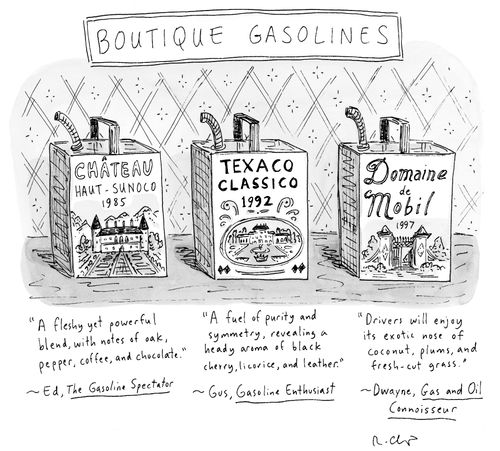 BOUTIQUE GASOLINES
CHÂTEAU
HAUT-SUNOCO
1985
TEXACO
CLASSICO
1992
Domaine
de
Mobil
1997
"A fleshy yet powerful
blend, with notes of oak,
pepper, coffee, and chocolate."
~ Ed, The Gasoline Spectator
"A fuel of purity and
symmetry, revealing a
heady aroma of black
cherry, licorice, and leather."
~ Gus, Gasoline Enthusiast
"Drivers will enjoy
its exotic nose of
coconut, plums, and
fresh-cut grass."
~Dwayne, Gas and Oil
Connoisseur